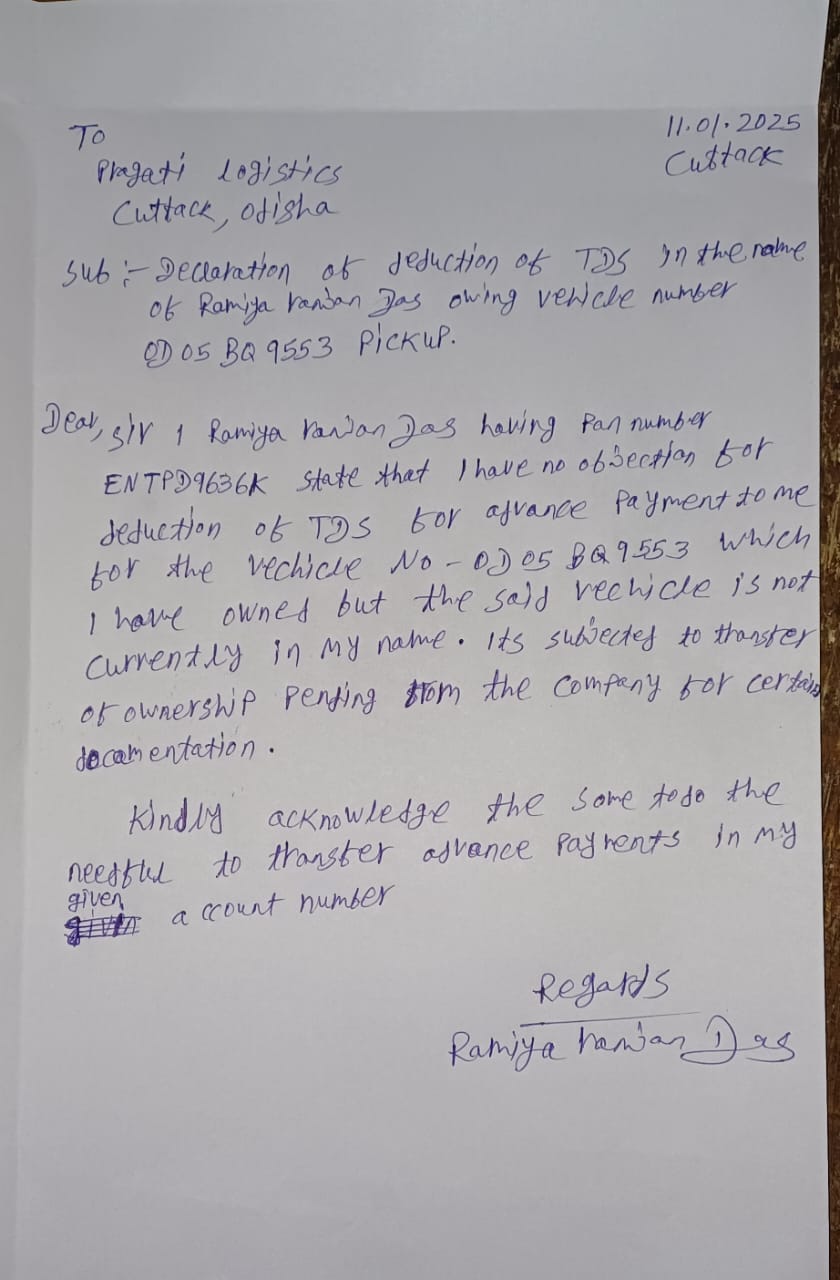 To
11.01.2025
Pragati logistics
Cuttack
Cuttack, odisha
Sub :- Declaration of deduction of TDS in the name
of Ramiya ranjan Das owing vehicle number
OD 05 BQ 9553 Pickup.
Dear, sir I Ramiya ranjan Das having Pan number
ENTPD9636K state that I have no objection for
deduction of TDS for advance Payment to me
for the vechicle No - OD 05 BQ 9553 which
I have owned but the said vechicle is not
currently in my name. Its subjected to transfer
of ownership Pending from the company for certain
documentation.
Kindly acknowledge the same to do the
needful to transfer advance Payments in my
given
account number
Regards
Ramiya ranjan Das